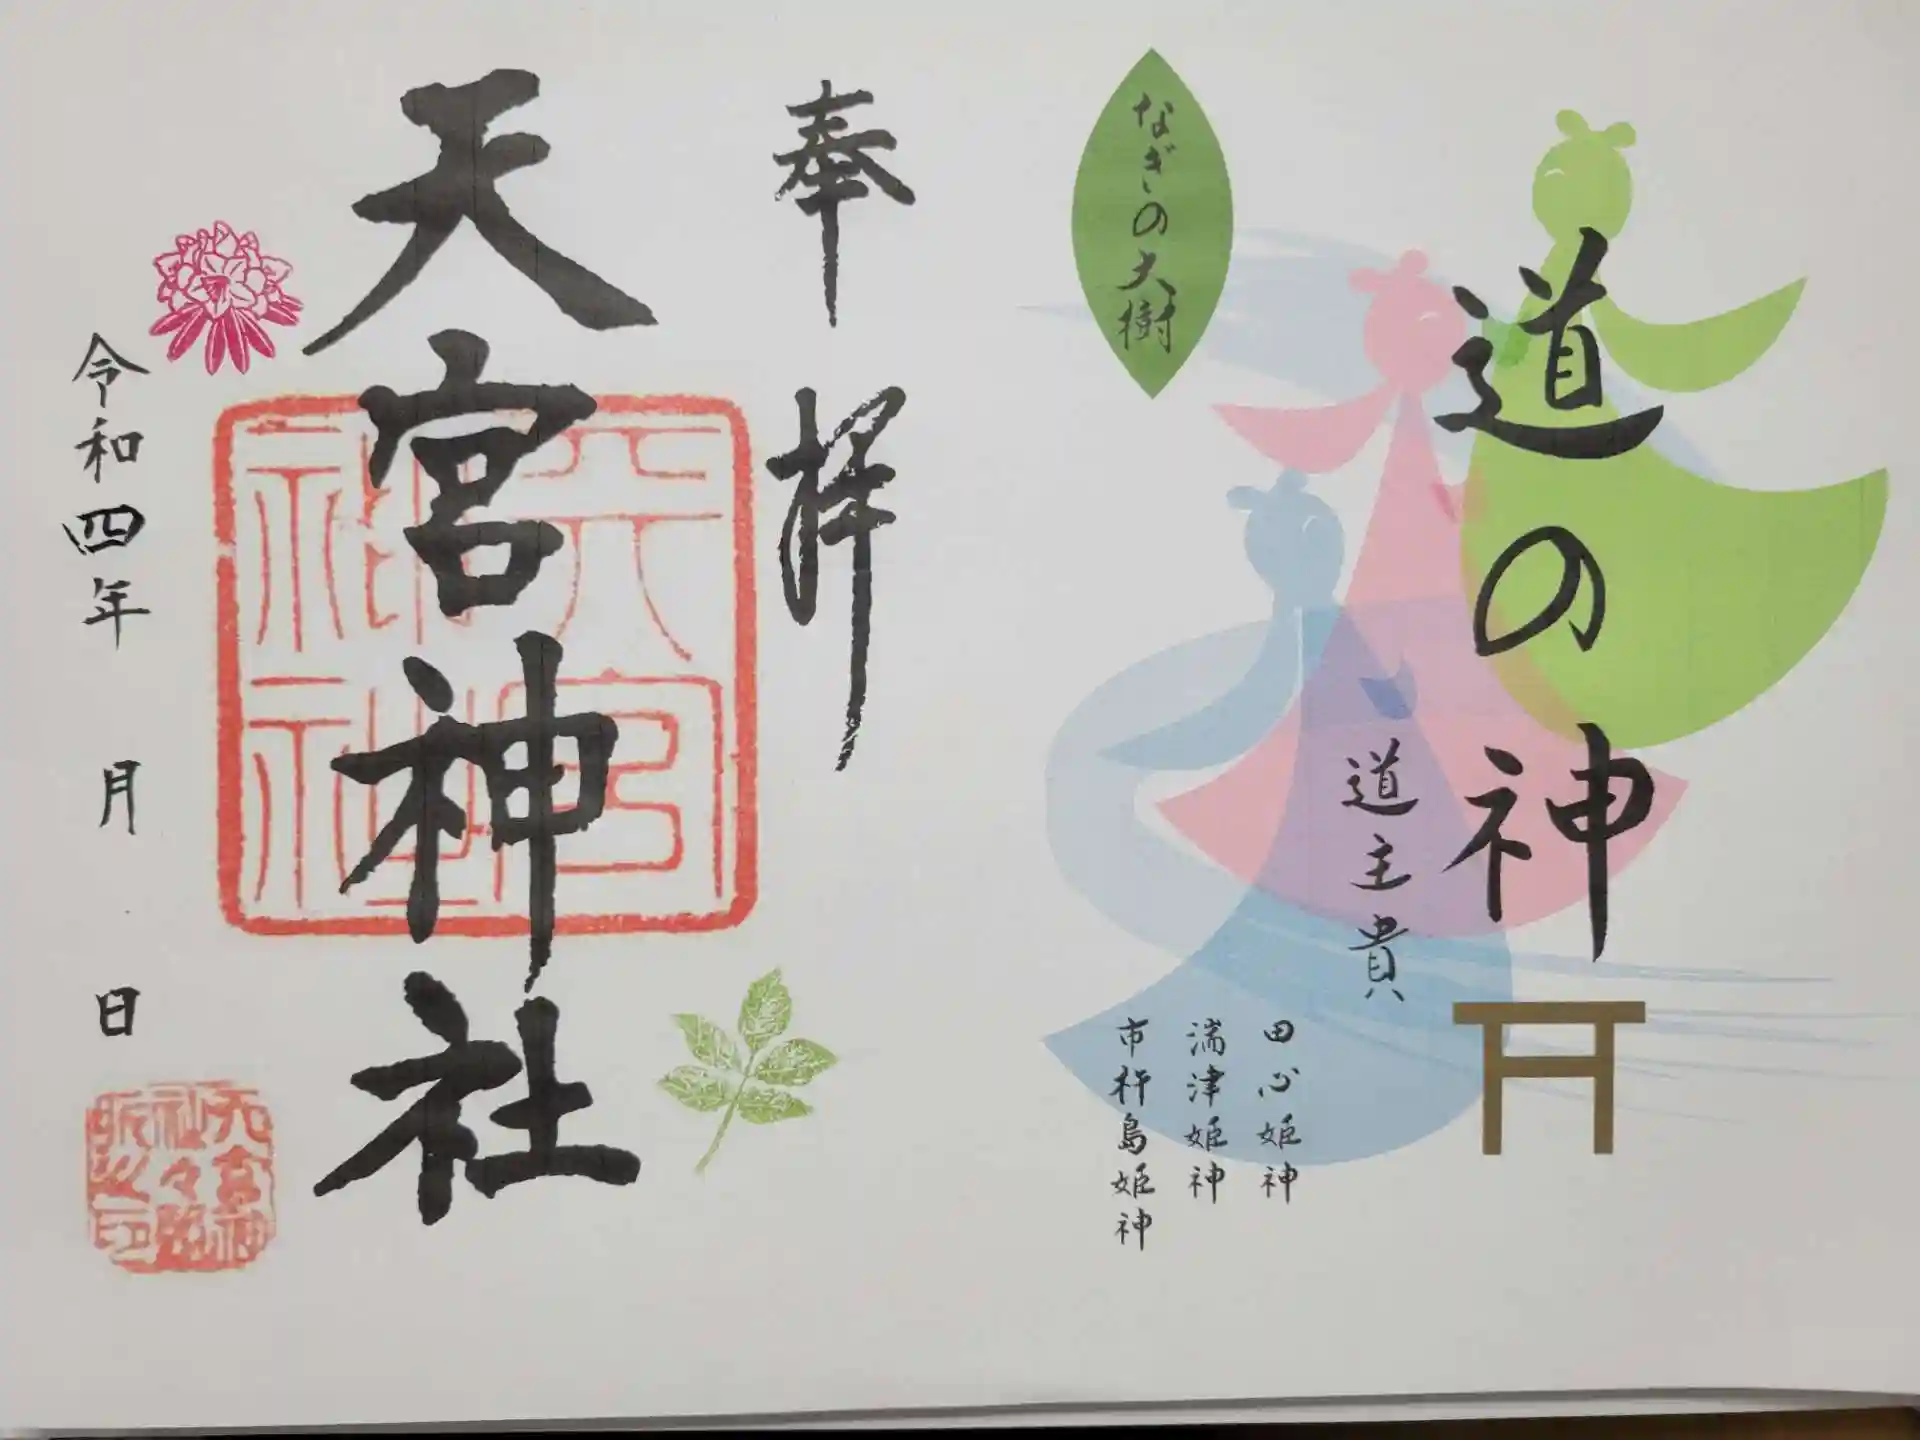 道の神
道主貴
なぎの大樹
田心姫神
湍津姫神
市杵島姫神
奉拝
天宮神社
天宮神社
令和四年 月 日